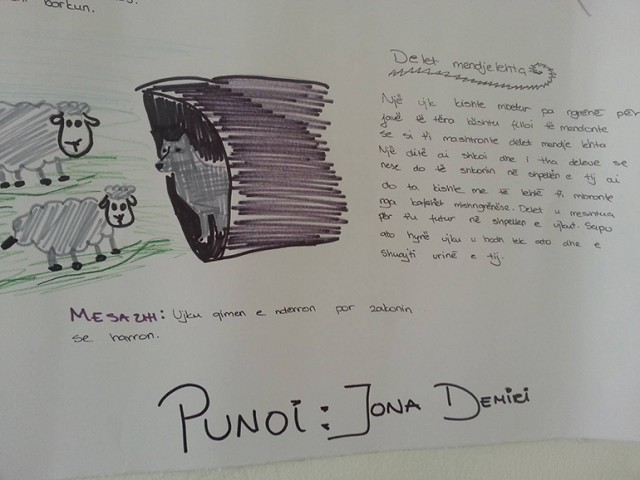 borkun.
Delet mendjelehta
Një ujk kishte mbetur pa ngrënë për
javë të tëra kështu filloi të mendonte
se si ti mashtronte delet mendje lehta
Një ditë ai shkoi dhe i tha deleve se
nese do të shkonin në shpellën e tij ai
do ta kishte me të lehtë ti mbronte
nga kafshët mishngrënëse. Delet u
për tu futur në shpellën e ujkut. Sapo
ato hynë ujku u hodh tek ato dhe e
shuajti urinë e tij.
MESAZHI: Ujku qimen e nderron por zakonin
se harron.
PUNOI: JONA DEMIRI